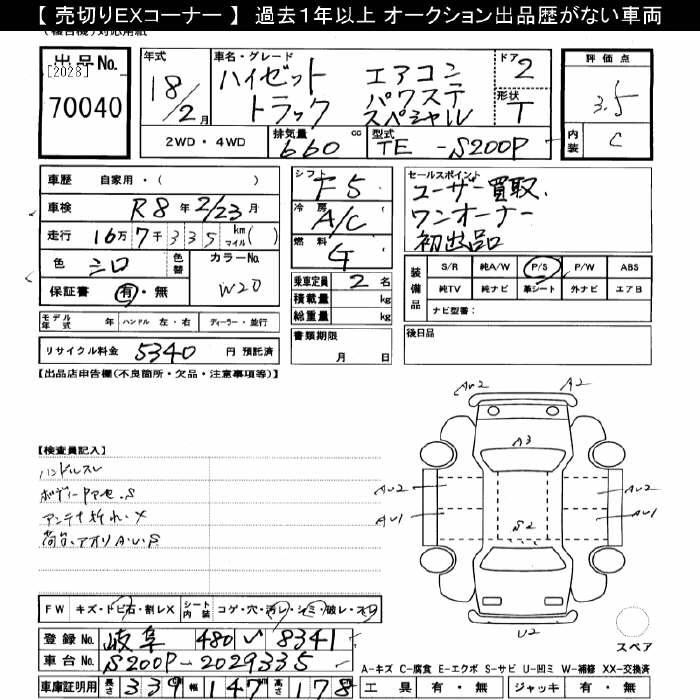 【 売切りEXコーナー 】 過去1年以上 オークション出品歴がない車両
出品No.
[2028]
70040
年式
18/2月
車名・グレード
ハイゼット エアコン
トラック パワステ
スペシャル
ドア 2
形状 T
評価点
3.5
内装 C
2WD・4WD
排気量 660 cc
型式 TE-S200P
車歴 自家用・( )
車検 R8年2/23月
走行 16万7千335 km マイル( )
色 シロ 色替 カラーNo. W20
保証書 有・無
モデル年式 年 ハンドル 左・右 ディーラー・並行
リサイクル料金 5340 円 預託済
シフト F5
冷房 A/C
燃料 G
乗車定員 2名
積載量 kg
総重量 kg
書類期限
月 日
セールスポイント
ユーザー買取.
ワンオーナー
初出品
装備品
S/R 純A/W P/S P/W ABS
純TV 純ナビ 革シート 外ナビ エアB
ナビ型番:
後日品
【出品店申告欄(不良箇所・欠品・注意事項等)】
【検査員記入】
ハンドルスレ
アンテナ折れ.X
荷台.アオリA.U.S
AU2 A2
A3
AU2 AU2
AU1 AU1
S2
U2
スペア
FW キズ・トビ石・割レX シート内装 コゲ・穴・汚レ・シミ・破レ・スレ
登録No. 岐阜 480 い 8341
車台No. S200P-2029335
A-キズ C-腐食 E-エクボ S-サビ U-凹ミ W-補修 XX-交換済
車庫証明用 長さ 339 幅 147 高さ 178
工具 有・無 ジャッキ 有・無